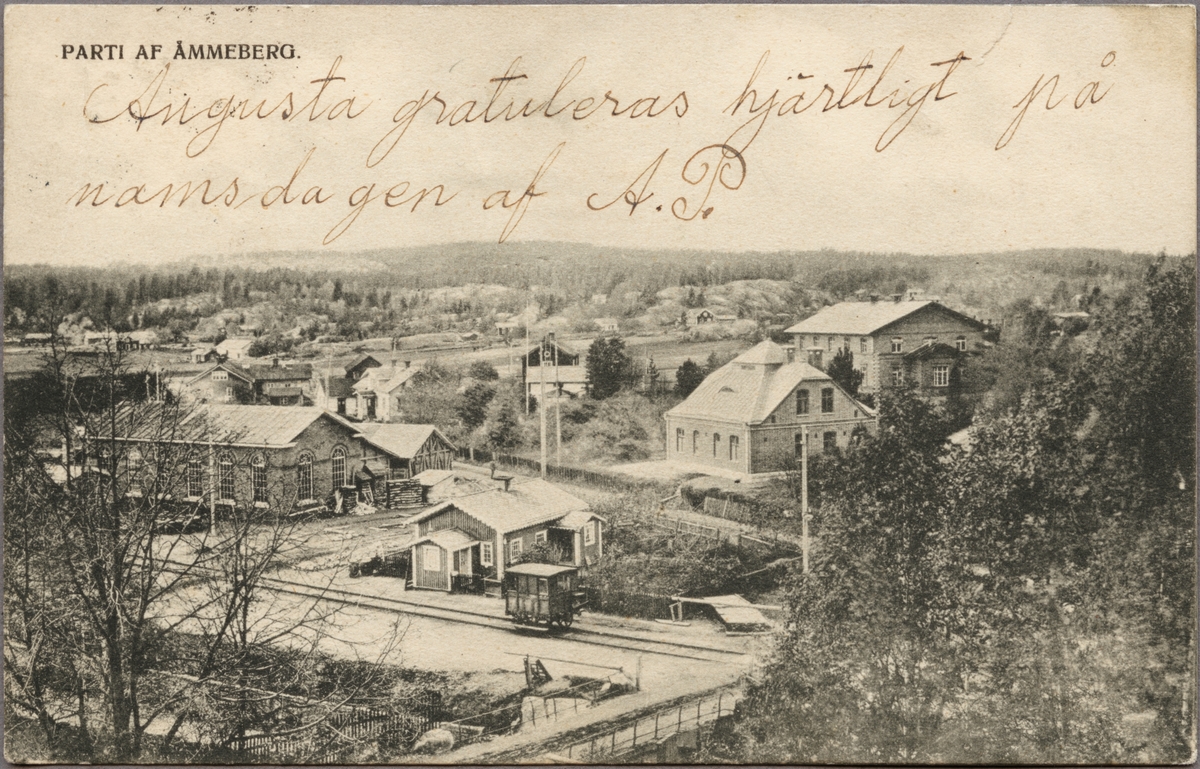 PARTI AF ÅMMEBERG.
Augusta gratuleras hjärtligt på
namsdagen af A.P.